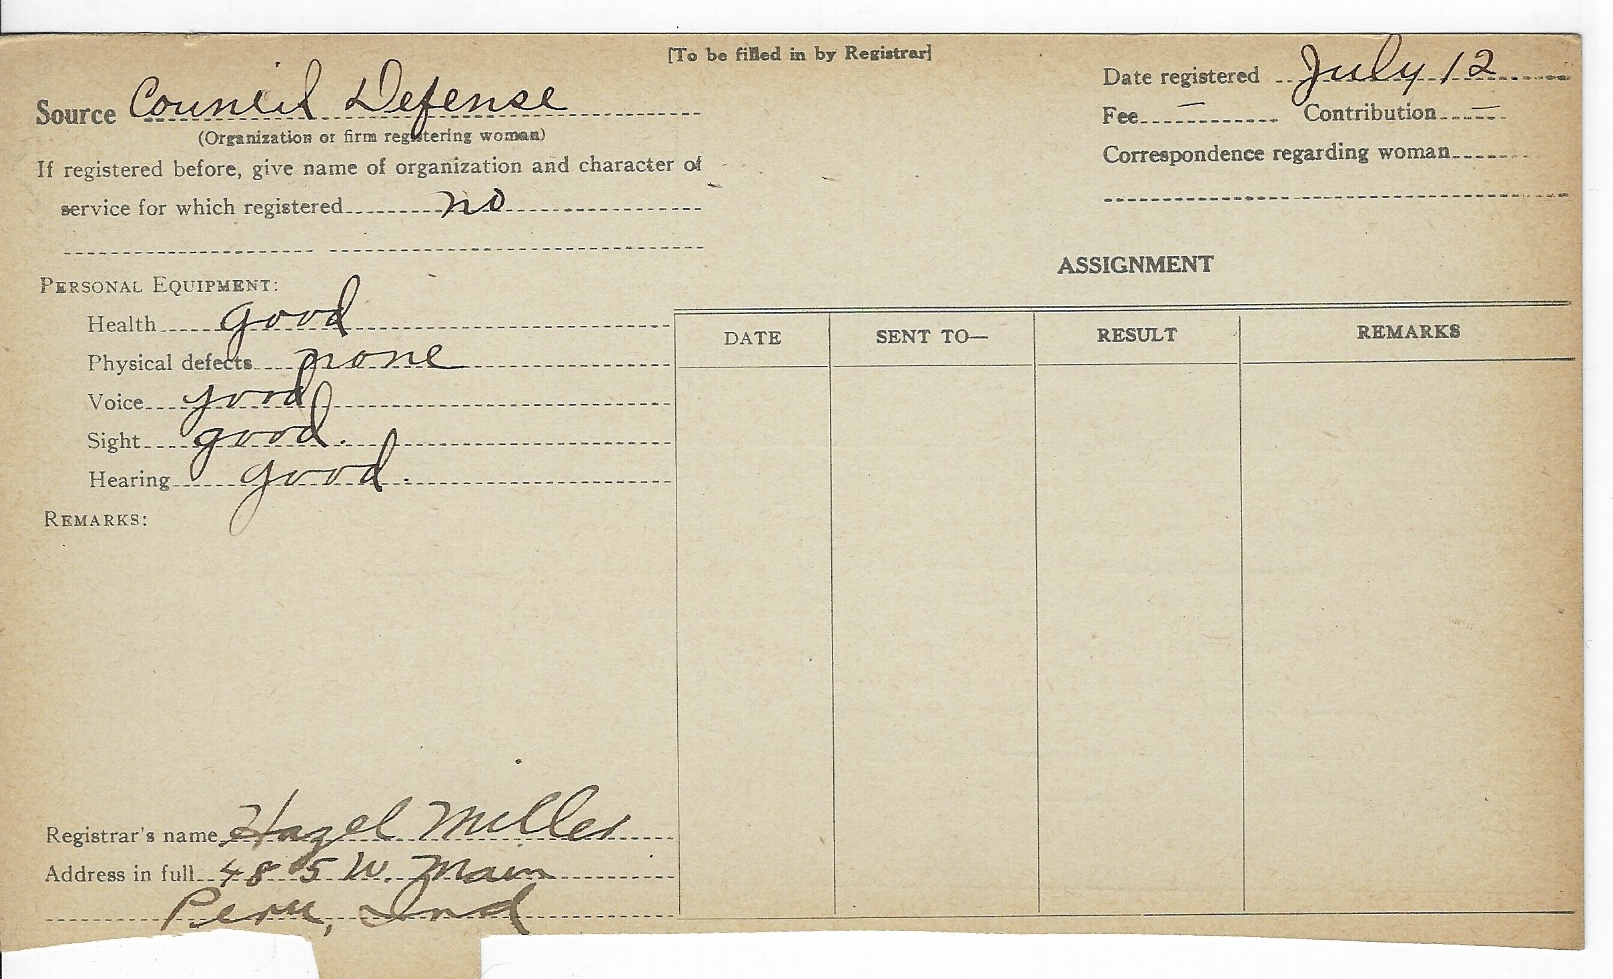 [To be filled in by Registrar]
Source Council Defense
(Organization or firm registering woman)
If registered before, give name of organization and character of
service for which registered no
Personal Equipment:
Health good
Physical defects none
Voice good
Sight good.
Hearing good.
Remarks:
Registrar's name Hazel Miller
Address in full 485 W. Main
Peru, Ind
Date registered July 12
Fee — Contribution —
Correspondence regarding woman
ASSIGNMENT
DATE SENT TO— RESULT REMARKS